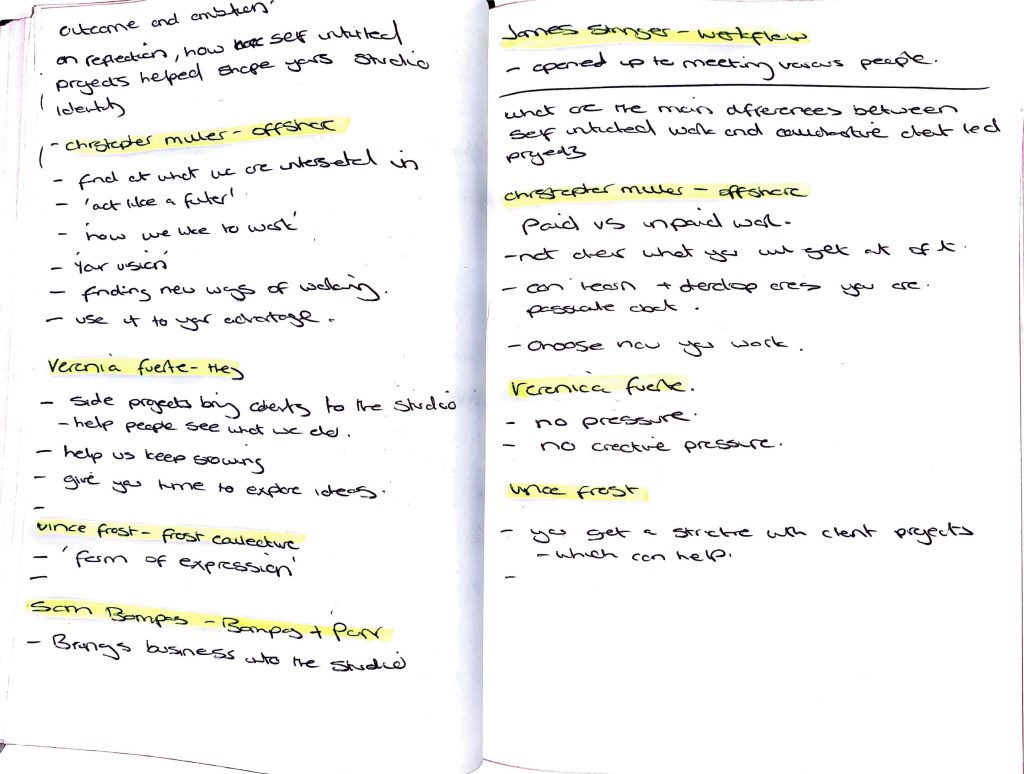 outcome and ambition.
on reflection, how self initiated
projects helped shape your studio
identity
- christopher muller - offshore
- find out what we are interested in
- 'act like a filter'
- 'how we like to work'
- 'your vision'
- finding new ways of working.
- use it to your advantage.
Veronia fuerte - Hey
- side projects bring identity to the studio
- help people see what we do.
- help us keep growing
- give you time to explore ideas.
-
vince frost - frost collective
- 'form of expression'
-
Sam Bompas - Bompas + Parr
- Brings business into the studio
James Stringer - workflow
- opened up to meeting various people.
what are the main differences between
self initiated work and collaborative client led
projects
christopher muller - offshore
Paid vs unpaid work.
- not clear what you will get out of it.
- can learn + develop areas you are
passionate about.
- choose how you work.
Veronica fuerte.
- no pressure.
- no creative pressure.
vince frost
- you get a structure with client projects
- which can help.
-